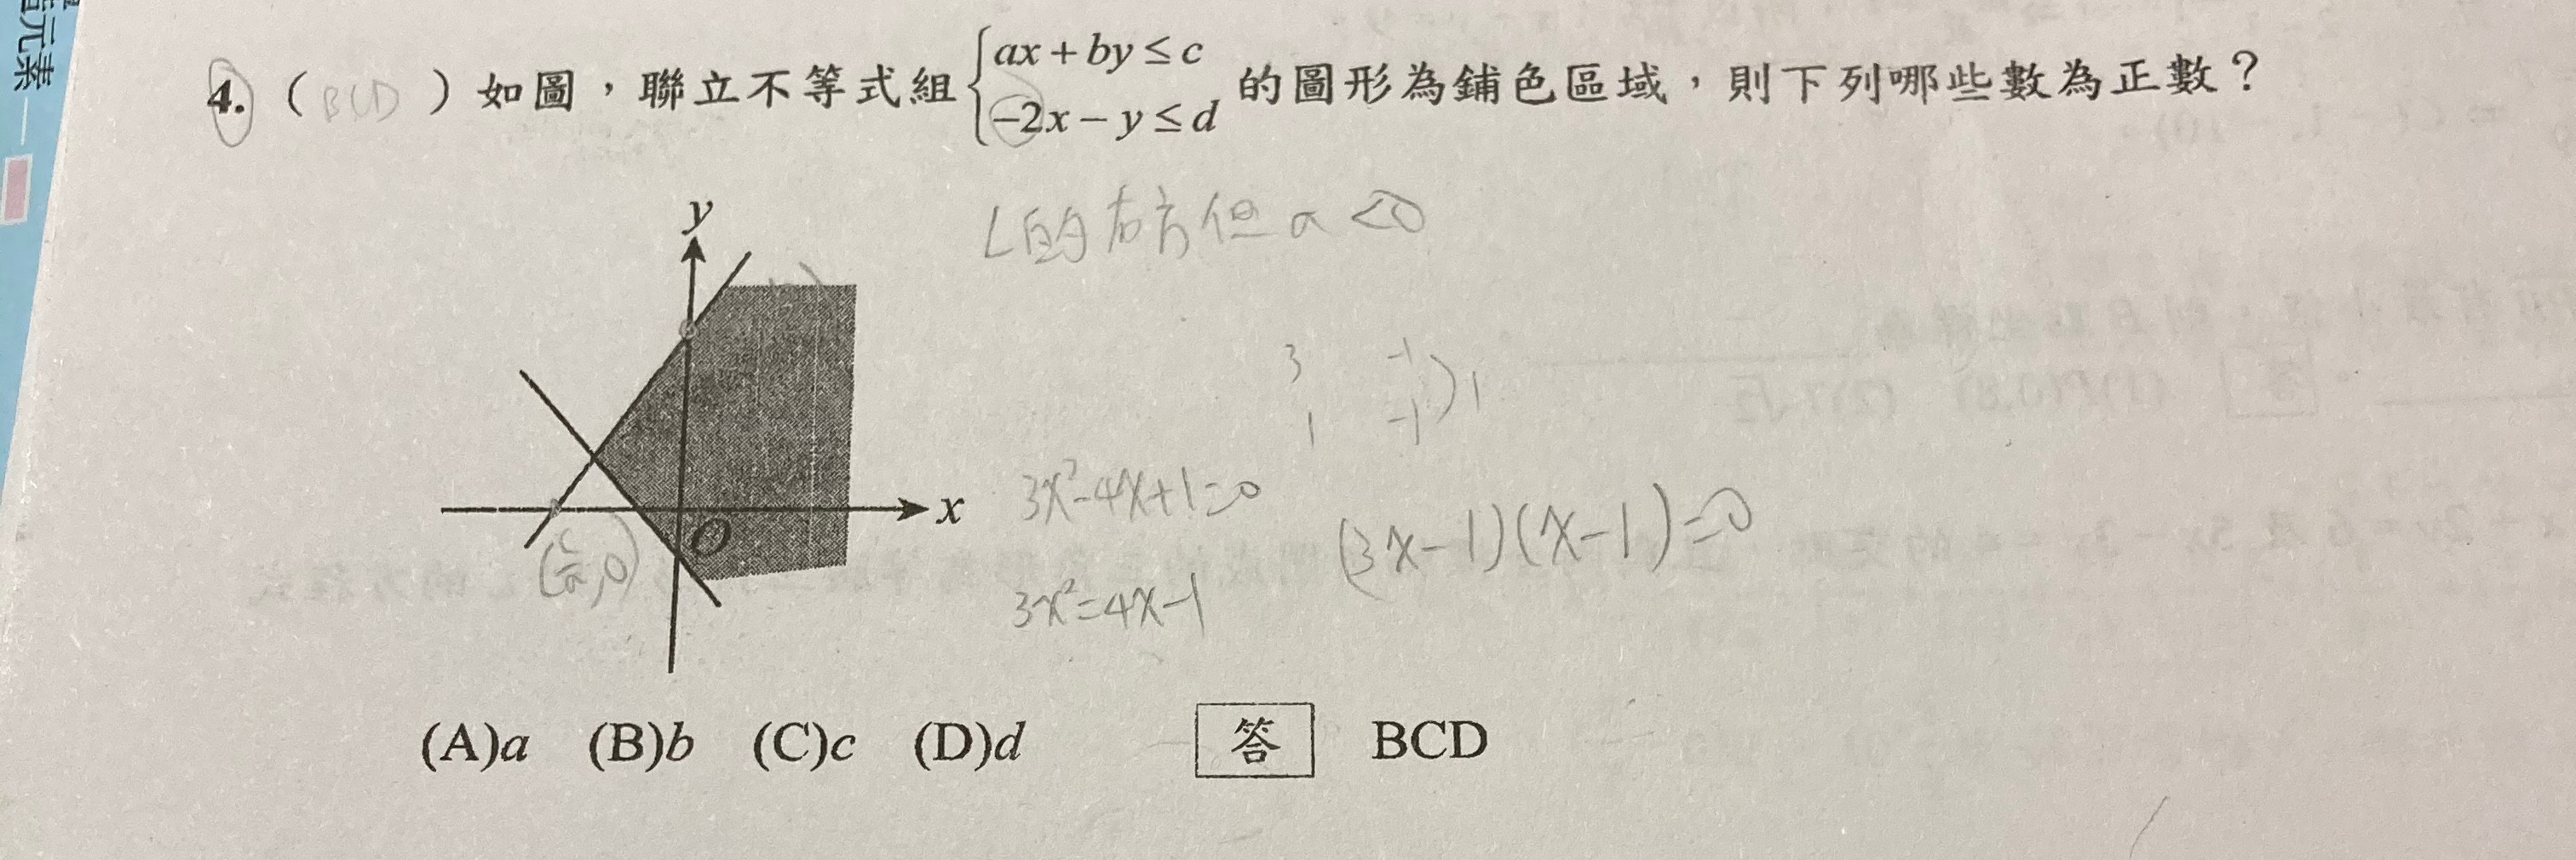 元素
4. ( BCD ) 如圖，聯立不等式組 { ax + by ≤ c
-2x - y ≤ d 的圖形為鋪色區域，則下列哪些數為正數？
L的右方但 a <0
y
3 -1
1 -1 ) 1
x
O
(c/a, 0)
3x²-4x+1=0
(3x-1)(x-1)=0
3x²=4x-1
(A)a (B)b (C)c (D)d 答 BCD